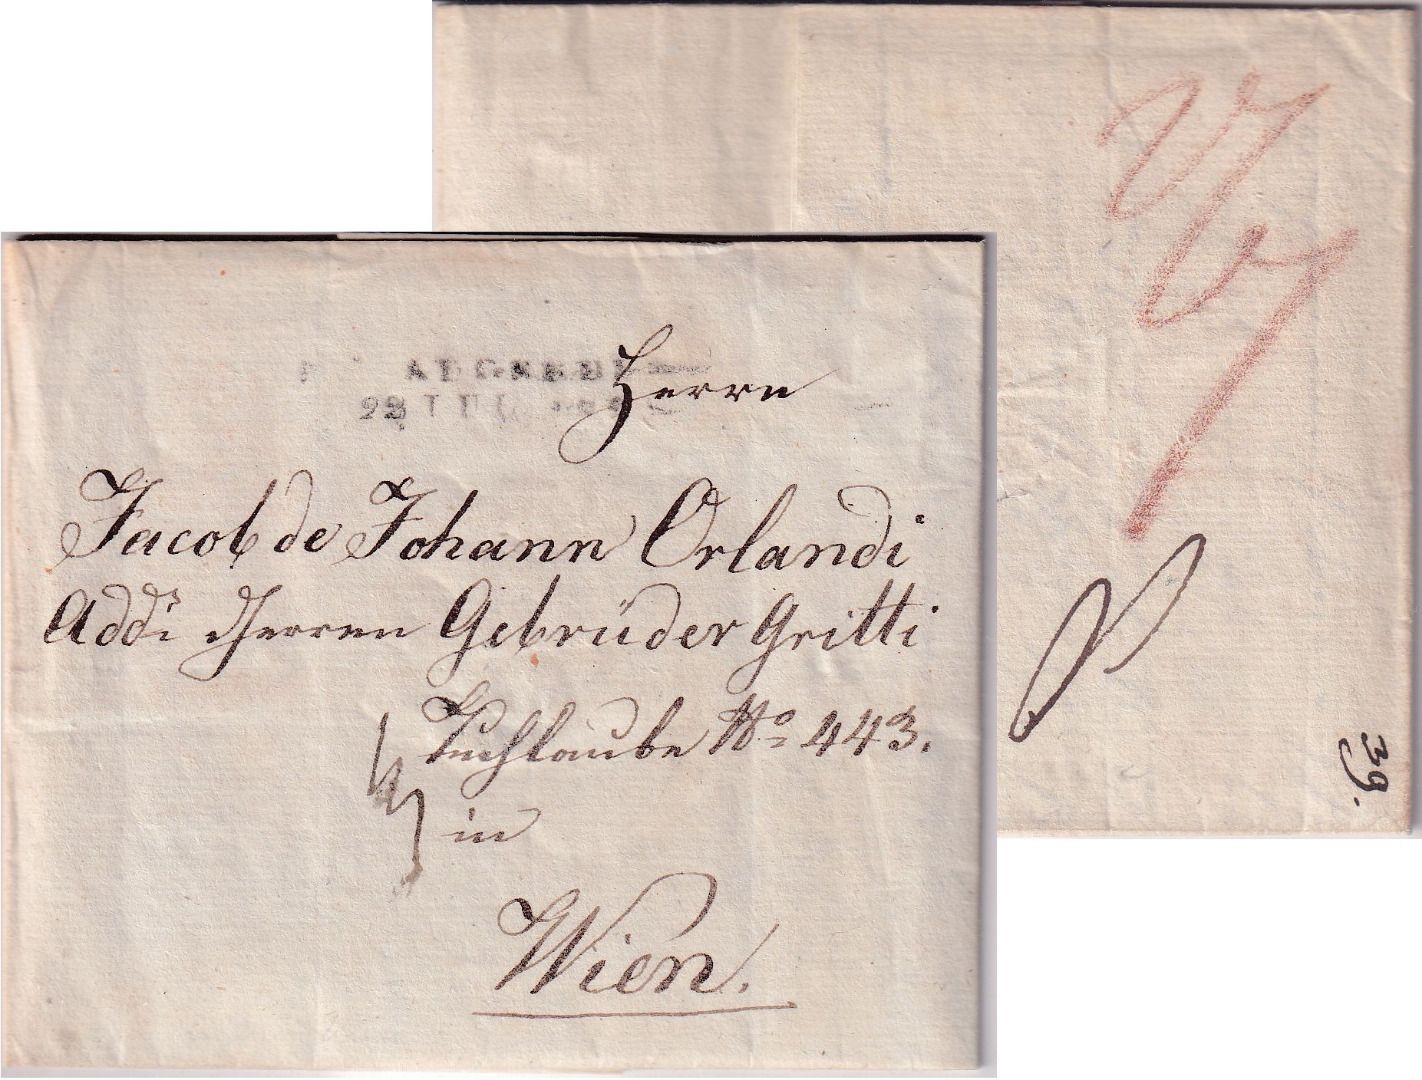 Herrn
Jacob de Johann Orlandi
Addi Herren Gebrüder Gritti
Tuchlaube No 443.
in
Wien.
39.